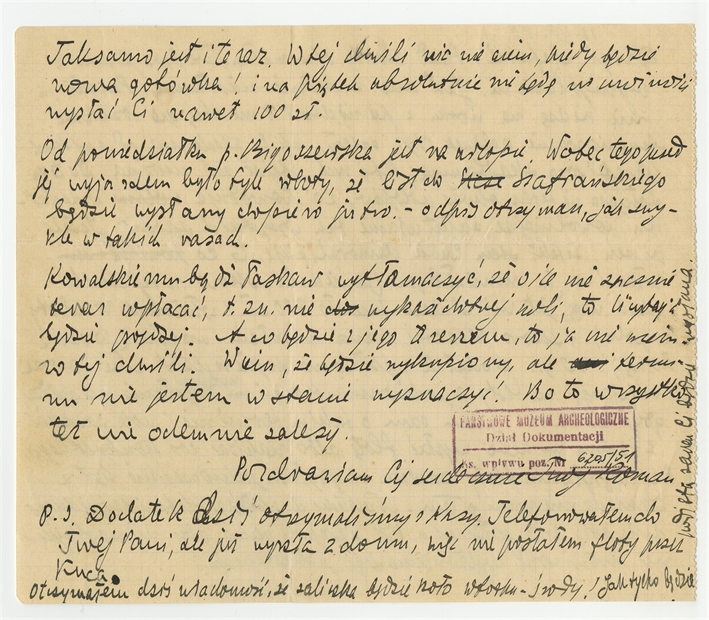 Taksamo jest i teraz. W tej chwili nic nie wiem, kiedy będzie
nowa gotówka! i na piątek absolutnie nie będę w możności
wysłać Ci nawet 100 zł.
Od poniedziałku p. Bigoszewska jest na urlopie. Wobec tego przed
jej wyjazdem było tyle roboty, że list do Szafrańskiego
będzie wysłany dopiero jutro. - odpis otrzymasz, jak zwy-
kle w takich razach.
Kowalskiemu bądź łaskaw wytłomaczyć, że o ile nie zacznie
teraz wpłacać, t. zn. nie wykaże dobrej woli, to licytacja
będzie prędzej. A co będzie z jego terenem, to ja nie wiem
w tej chwili. Wiem, że będzie wykupiony, ale termi-
nu nie jestem w stanie wyznaczyć. Bo to wszystko
też nie odemnie zależy.
PAŃSTWOWE MUZEUM ARCHEOLOGICZNE
Dział Dokumentacji
Ks. wpływu poz. Nr 6205/51
Pozdrawiam Cię serdecznie Twój Roman
P. S. Dodatek dziś otrzymaliśmy z Kasy. Telefonowałem do
Twej Pani, ale już wyszła z domu, więc nie posłałem floty przez
Kuca.
Otrzymałem dziś wiadomość, że zaliczka będzie koło wtorku - środy! Jak tylko będzie
zaraz Ci będzie wysłana.